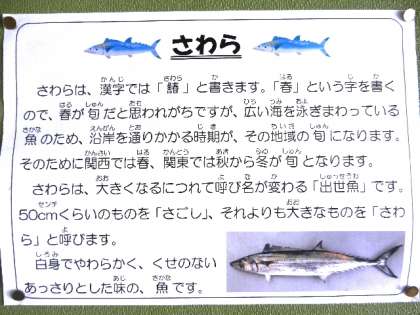 さわら
さわらは、漢字では「鰆」と書きます。「春」という字を書く
ので、春が旬だと思われがちですが、広い海を泳ぎまわっている
魚のため、沿岸を通りかかる時期が、その地域の旬になります。
そのために関西では春、関東では秋から冬が旬となります。
さわらは、大きくなるにつれて呼び名が変わる「出世魚」です。
50cmくらいのものを「さごし」、それよりも大きなものを「さわ
ら」と呼びます。
白身でやわらかく、くせのない
あっさりとした味の、魚です。